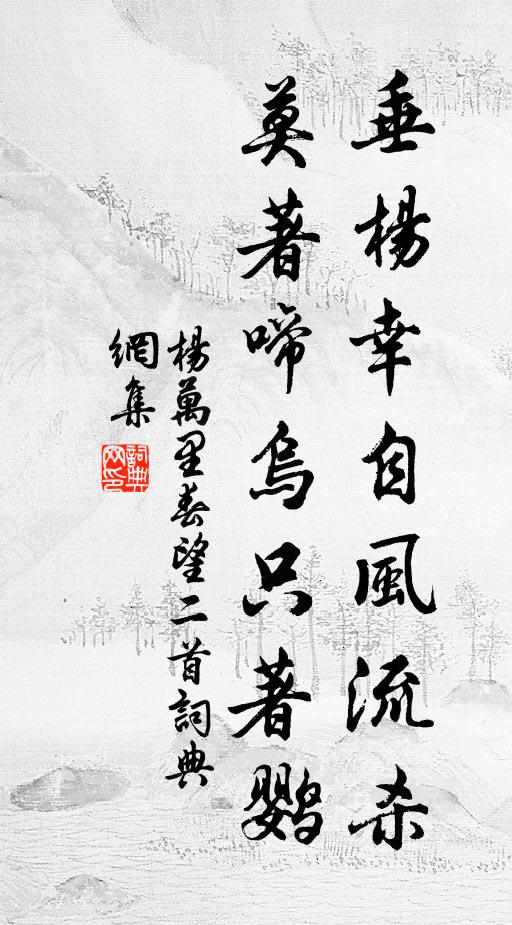 垂楊幸自風流杀
莫著啼烏只著鸚
楊萬里春望二首詞典
網集
詞典
网印